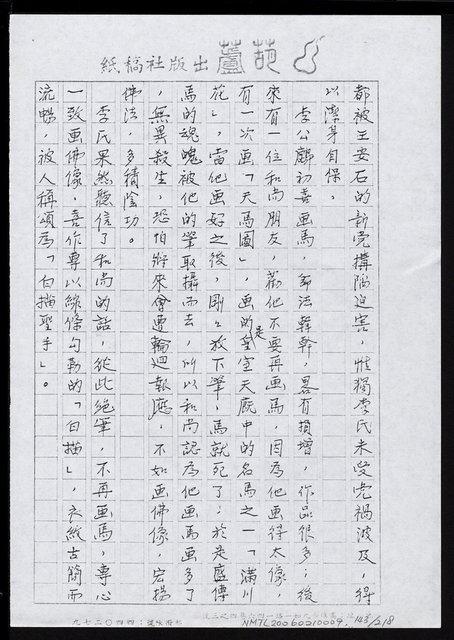 紙稿社版出蘆葩
都被王安石的新党搆陷迫害，惟獨李氏未受党禍波及，得
以潔身自保。
李公麟初喜画馬，師法韓幹，畧有損增，作品很多；後
來有一位和尚朋友，勸他不要再画馬，因為他画得太像，
有一次画「天馬圖」，画的是皇室天廐中的名馬之一「滿川
花」，當他画好之後，剛剛放下筆，馬就死了；於是盛傳
馬的魂魄被他的筆取攝而去，所以和尚認為他画馬画多了
，無異殺生，恐怕將來會遭輪迴報應，不如画佛像，宏揚
佛法，多積陰功。
李氏果然聽信了和尚的話，從此絕筆，不再画馬，專心
一致画佛像，喜作專以線條勾勒的「白描」，衣紋古簡而
流暢，被人稱頌為「白描聖手」。
NMTL20060210009. 143/218